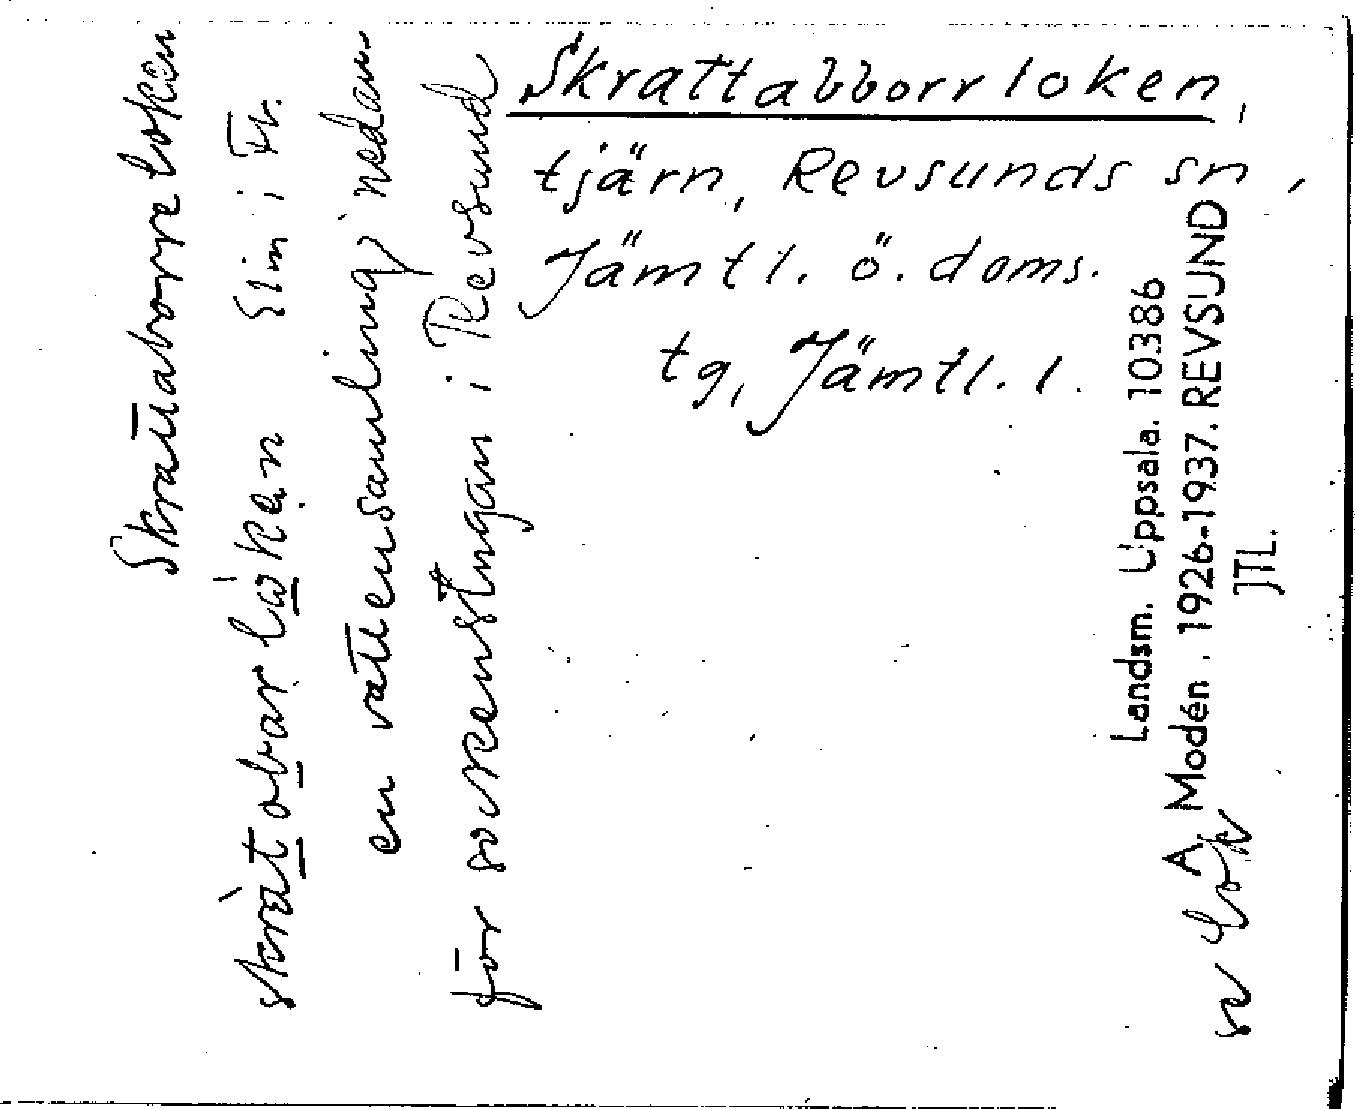 Skrattabborrloken,
tjärn, Revsunds sn,
Jämtl. ö. doms.
tg, Jämtl. l.
Skrattaborreloken
skràtobar lòken Elin i Fr.
en vattensamling nedan
för sockenstugan i Revsund
Landsm. Uppsala. 10386
A Modén. 1926-1937. REVSUND
JTL.
lok